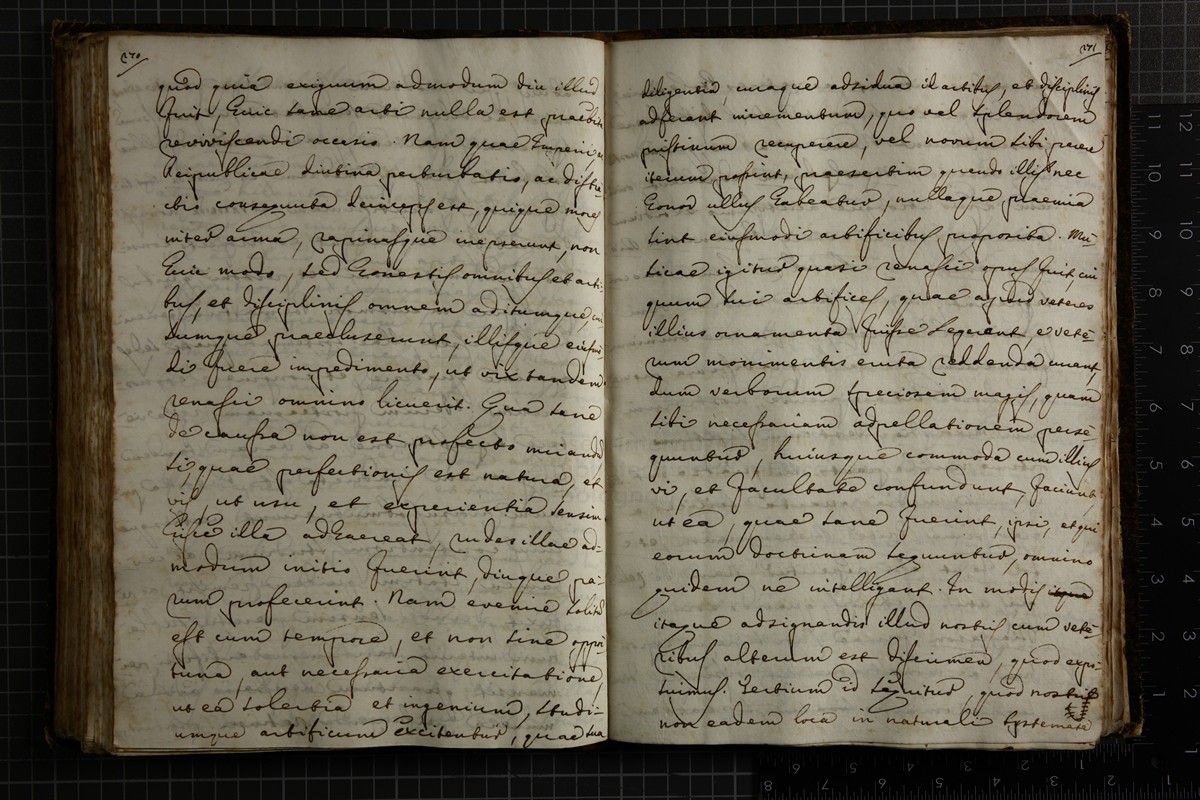 270
quod quia exiguum admodum diu illud
fuit, huic tamē arti nulla est praebita
reviviscendi occasio. Nam quae Imperii
Reipublicae diutina perturbatio, ac distra
ctio consequuta deinceps est, quique mores
inter arma, rapinasque irrepserunt, non
huic modo, sed honestis omnibus et arti-
bus, et disciplinis omnem aditumque,
dumque praecluserunt, illisque eiusmo
di fuere impedimento, ut vix tandem
renasci omnino licuerit. Qua sane
de caussa non est profecto mirandū
si, quae perfectionis est natura, et
vis, ut usu, et experientia sensim
huic illa adhaereat, rudes illae ad-
modum initio fuerint, diuque pa-
rum profecerint. Nam evenire solitū
est cum tempore, et non sine oppor
tuna, aut necessaria exercitatione,
ut ea solertia et ingenium, studi-
umque artificum excitentur, quae sua
271
diligentia, curaque adsidua id artibus, et disciplinis
adferant incrementum, quo vel splendorem
pristinum recuperare, vel novum sibi parere
iterum possint, praesertim quando illis nec
honos ullus habeatur, nullaque praemia
sint eiusmodi artificibus proposita. Mu
sicae igitur quasi renasci opus fuit, cui
quum sui artifices, quae apud veteres
illius ornamenta fuisse legerant, e vetē
rum monimentis eruta reddenda curant,
dum verborum speciosam magis, quam
sibi necessariam adpellationem perse
quuntur, huiusque commoda cum illius
vi, et facultate confundunt, faciunt,
ut ea, quae sane fuerint, ipsi, et qui
eorum doctrinam sequuntur, omnino
quidem ne intelligant. In modis
itaque adsignandis illud nostris cum vete-
ribus alterum est discrimen, quod expo
suimus. Tertium id sequitur, quod nostri
non eadem loca in naturali systemate